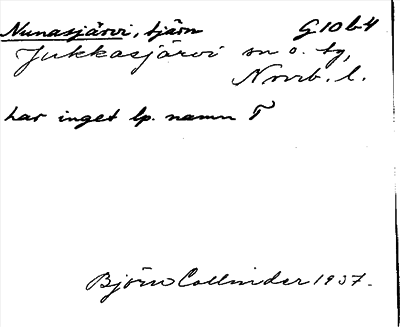 Nunasjärvi, tjärn G 10 b4
Jukkasjärvi sn o. tg,
Nrrb. l.
har inget lp. namn T
Björn Collinder 1937.